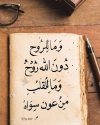 وَمَا لِلرُّوحِ
دُونَ اللهِ رَوْحٌ
وَمَا لِلْقَلْبِ
مِنْ عَوْنٍ سِوَاهُ